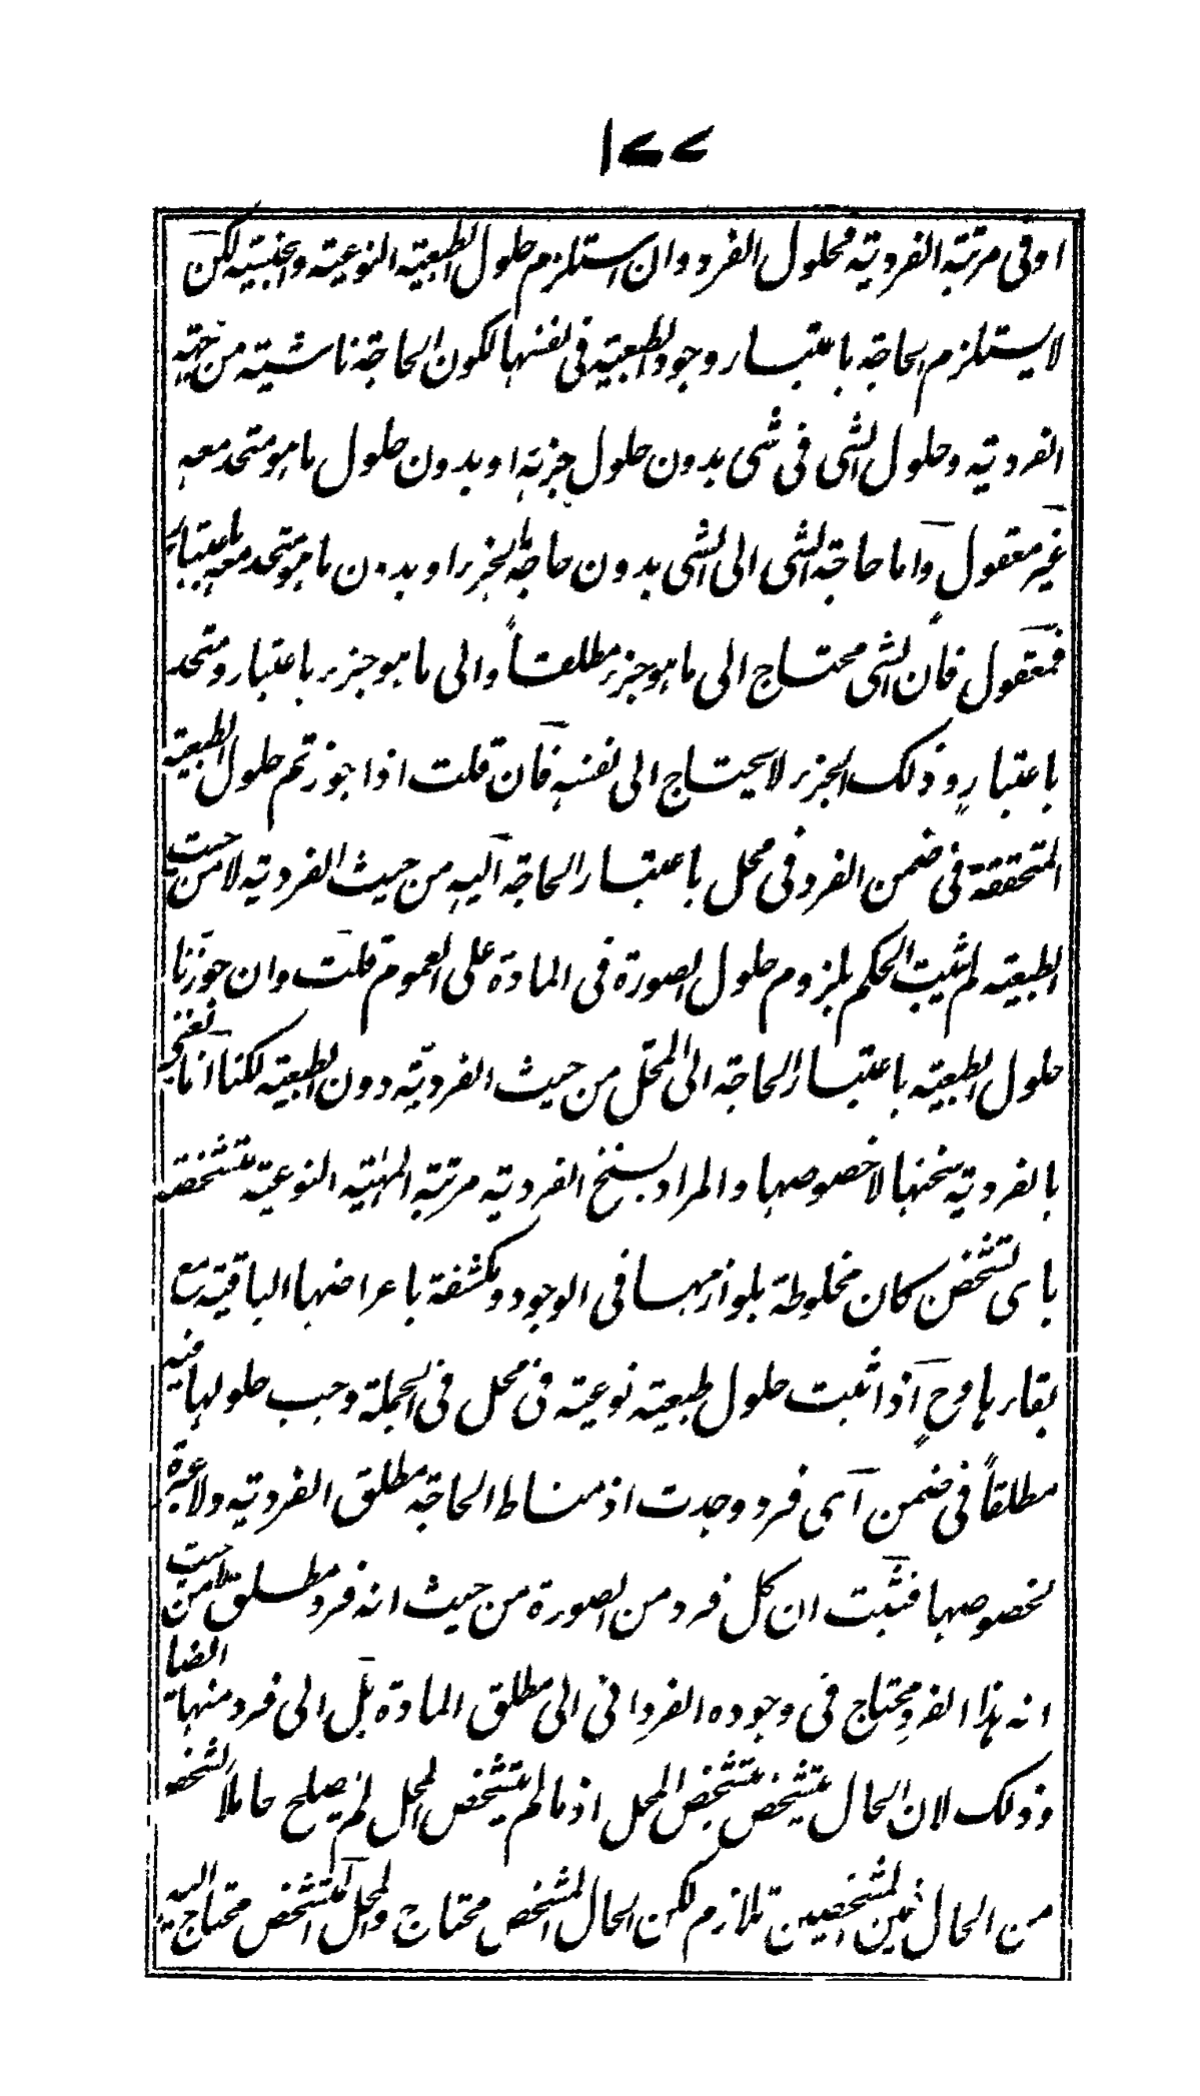 ١٧٧
او فى مرتبة الفردية فحلول الفرد وان استلزم حلول الطبعية النوعية والجنسية لكن
لا يستلزم الحاجة باعتبار وجود الطبعية فى نفسها لكون الحاجة ناشية من جهة
الفردية وحلول الشى فى شى بدون حلول جزئه او بدون حلول ما هو متحد معه
غير معقول واما حاجة الشى الى الشى بدون حاجة الجزء او بدون ما هو متحد معه باعتبار
فمعقول فان الشى محتاج الى ما هو جزء مطلقاً والى ما هو جزء باعتبار ومتحد
باعتبارٍ وذلك الجزء لا يحتاج الى نفسه فان قلت اذا جوزتم حلول الطبعية
المتحققة فى ضمن الفرد فى محل باعتبار الحاجة اليه من حيث الفردية لا من حيث
الطبعية لم يثبت الحكم بلزوم حلول الصورة فى المادة على العموم قلت وان جوزنا
حلول الطبعية باعتبار الحاجة الى المحل من حيث الفردية دون الطبعية لكنا انا نعنى
بالفردية سنخها لا خصوصها والمراد بسنخ الفردية مرتبة المهٰية النوعية متشخصة
باى تشخص كان مخلوطة بلوازمها فى الوجود ومكتنفة باعراضها الباقية مع
بقاءها وحٍ اذا ثبت حلول طبعية نوعية فى محل فى الجملة وجب حلولها فيه
مطلقاً فى ضمن اى فرد وجدت اذ مناط الحاجة مطلق الفردية ولا عبرة
لخصوصها فثبت ان كل فرد من الصورة من حيث انه فرد مطلق لا من حيث
انه هذا الفرد محتاج فى وجوده الفردانى الى مطلق المادة بل الى فرد منها ايضا
وذلك لان الحال يتشخص بتشخص المحل اذ ما لم يتشخص المحل لم يصلح حاملاً لشخص
من الحال فبين المشخصين تلازم لكن الحال المشخص محتاج والمحل المتشخص محتاج اليه